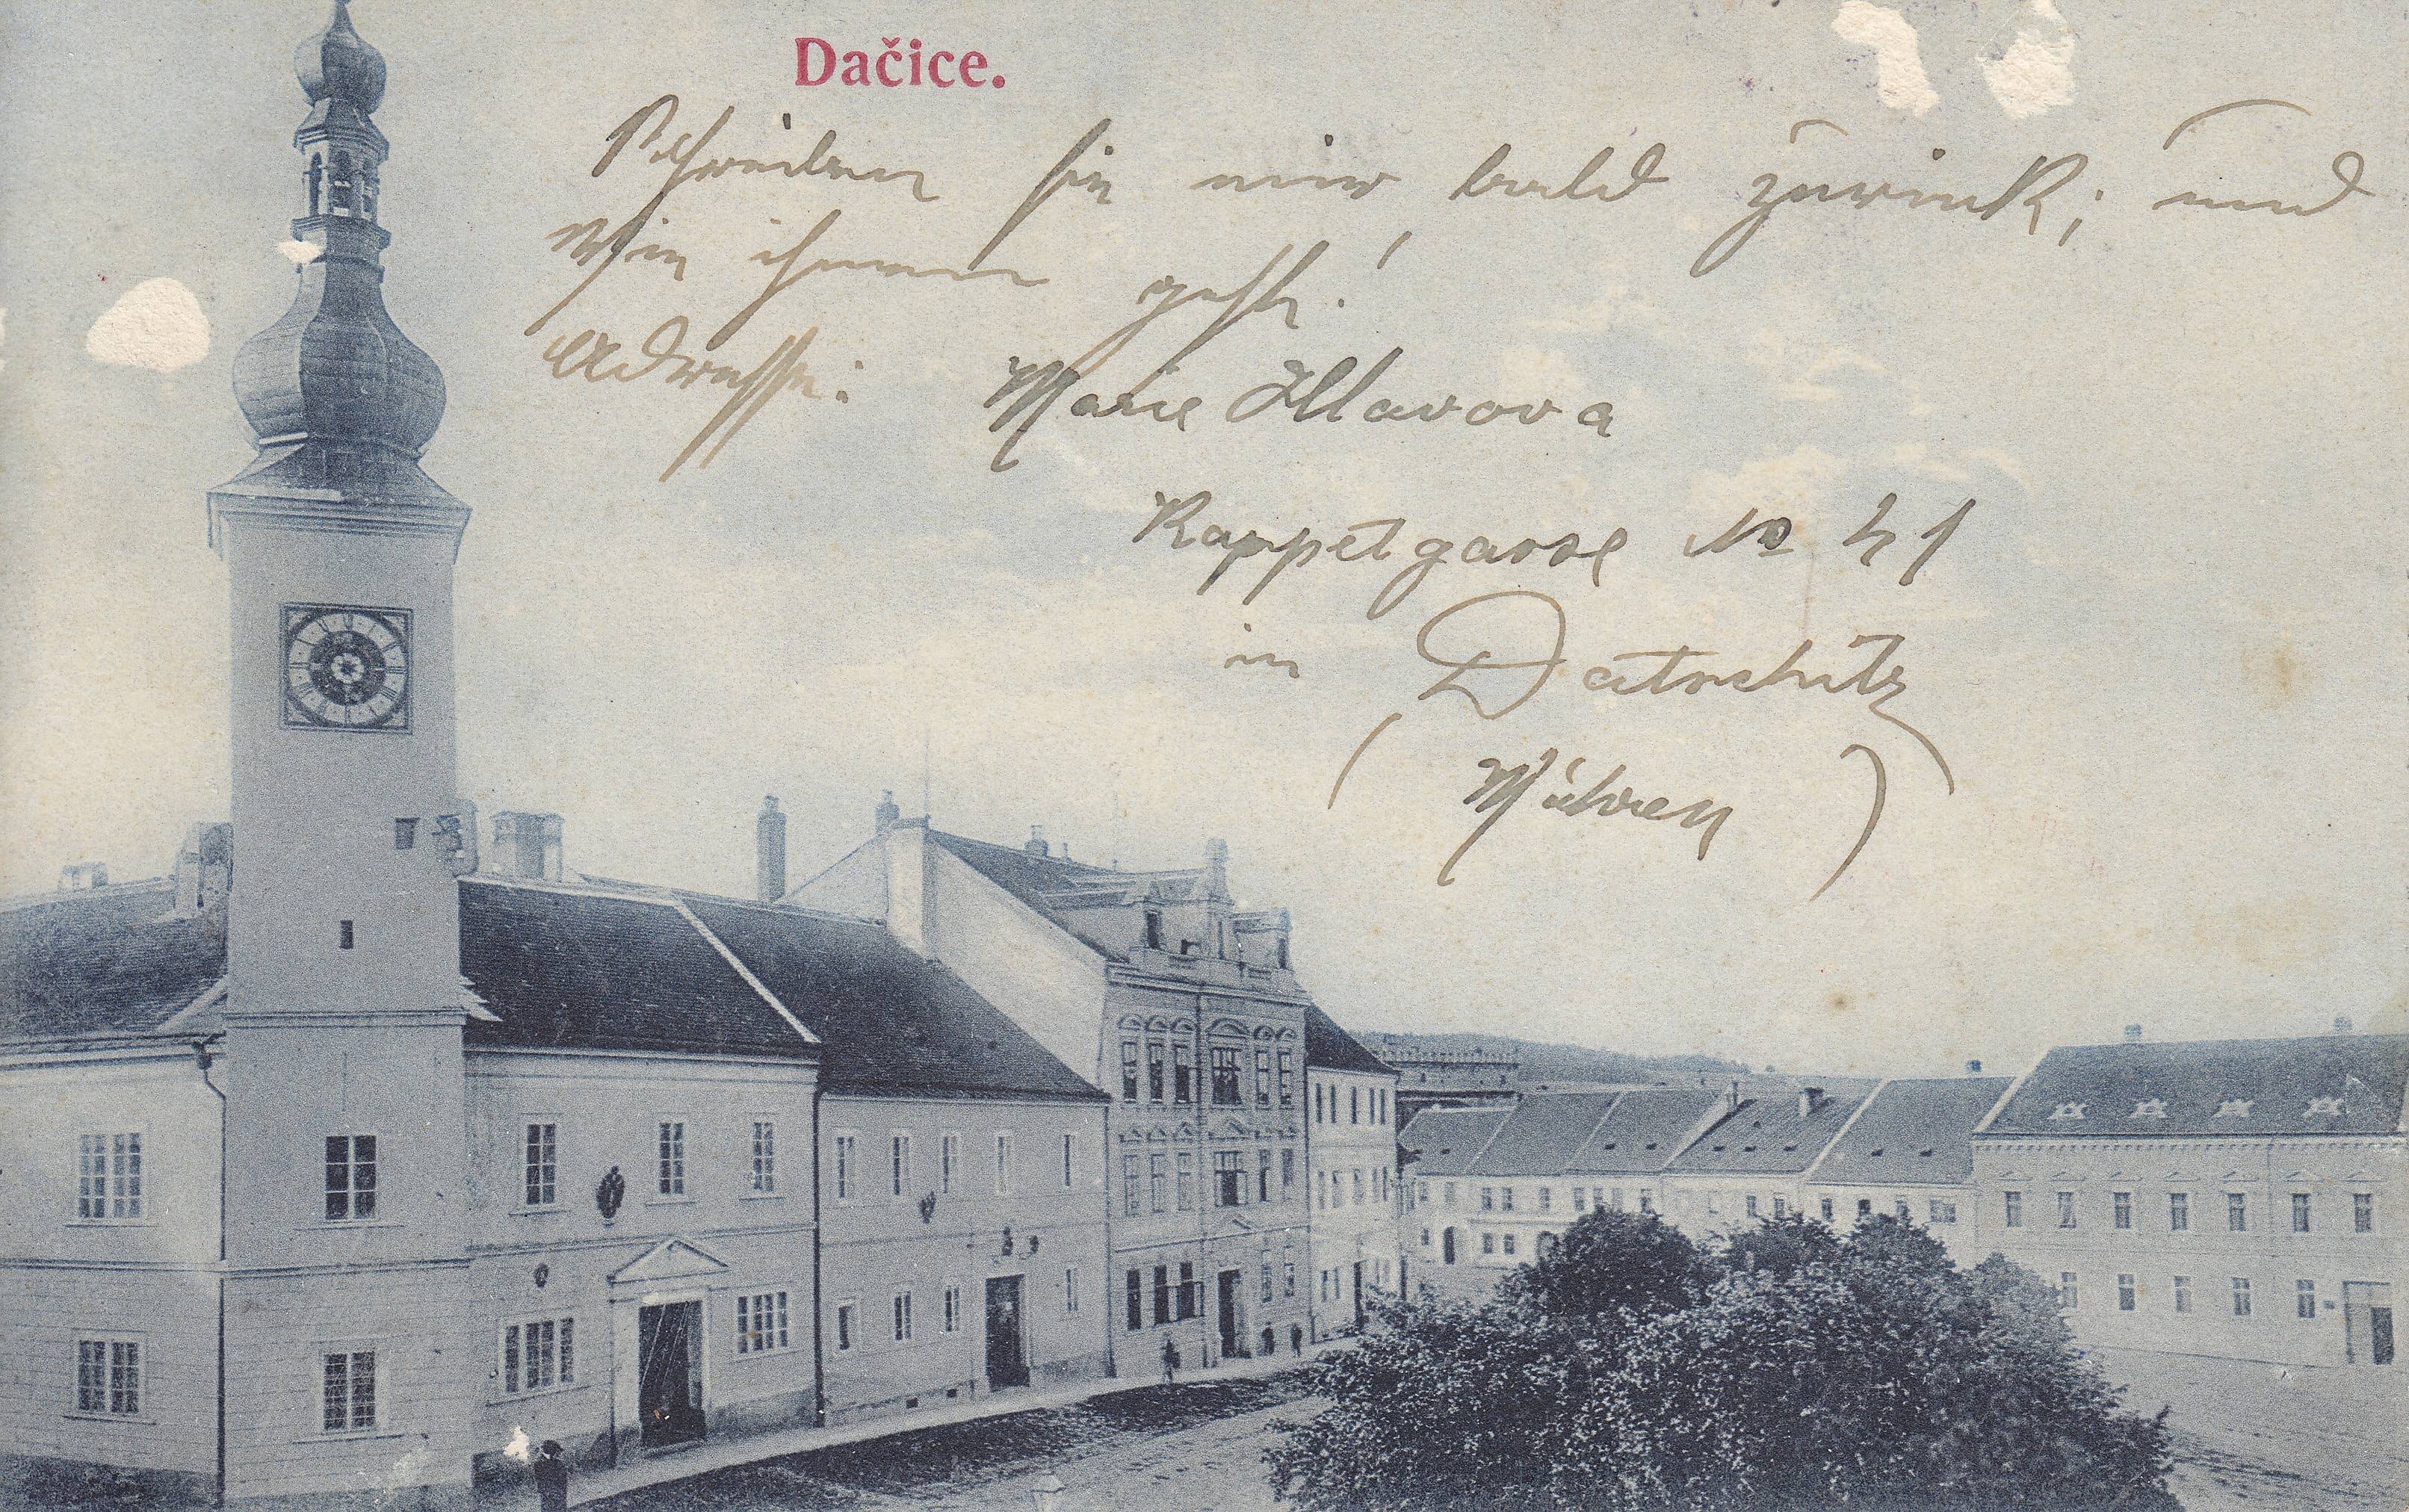 Dačice.
Schreiben sie mir bald zurück; und
Wie ihnen geht!
Adresse:
Marie Hlavova
Kappetgasse № 41
in Datschitz
(Mähren)